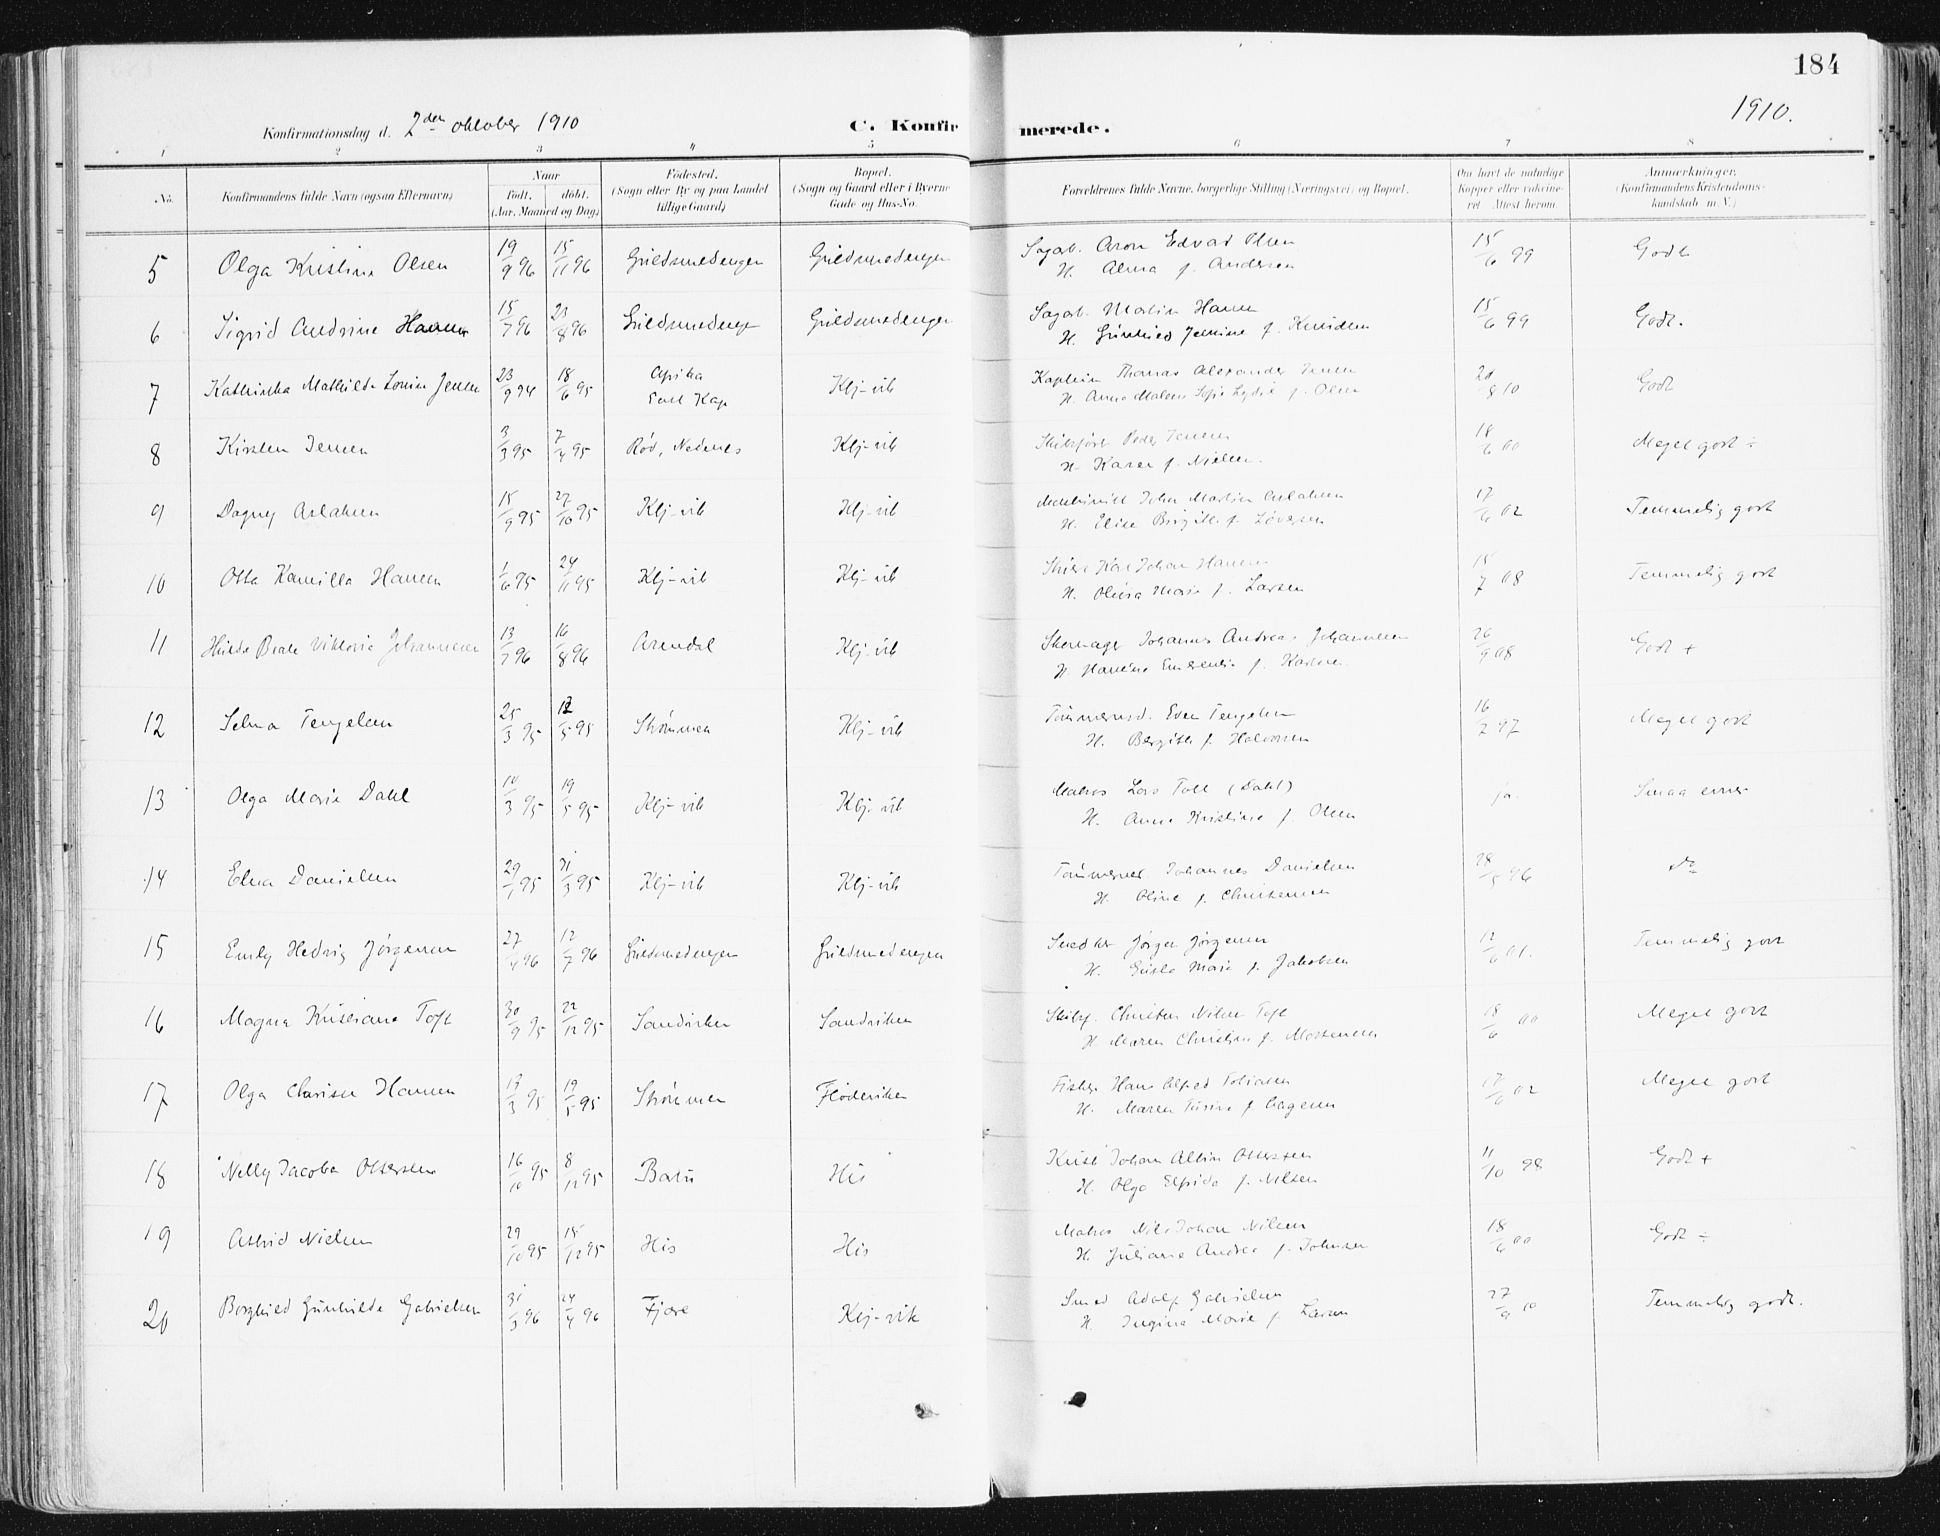 184
1910.
Konfirmationsdag d. 2den oktober 1910
C. Konfirmerede.
1 2 3 4 5 6 7 8
No. Konfirmandens fulde Navn (ogsaa Efternavn) Naar født, døbt. (Aar, Maaned og Dag) Fødested. (Sogn eller By og paa Landet tillige Gaard) Bopæl. (Sogn og Gaard eller i Byerne Gade og Hus-No. Forældrenes fulde Navne, borgerlige Stilling (Næringsvei) og Bopæl. Om havt de naturlige Kopper eller vaccineret. Attest herom. Anmerkninger. (Konfirmandens Kristendomskundskab m. V.)
5 Olga Kristine Olsen 19/9 96 15/11 96 Guldsmedengen Guldsmedengen Sagarb. Aron Edvad Olsen 15/6 99 Godt
H. Alma f. Andersen
6 Sigrid Andrine Hansen 15/7 96 23/8 96 Guldsmedengen Guldsmedengen Sagarb. Martin Hansen 15/6 99 Godt.
H. Gunhild Jensine f. Knudsen
7 Kathinka Mathilde Louise Jensen 23/9 94 18/6 95 Afrika Port Kap Klj-vik Kaptein Thomas Alexander Jensen 20/8 10 Godt
H. Anne Malene Sofie Lydie f. Olsen
8 Kirsten Jensen 3/3 95 7/4 95 Rød, Nedenes Klj-vik Skibsfører Peder Jensen 18/6 00 Meget godt ÷
H. Karen f. Nielsen.
9 Dagny Aslaksen 15/9 95 27/10 95 Klj-vik Klj-vik John Martin Aslaksen 17/6 02 Temmelig godt
H. Elise Birgitte f.
10 Otta Kamilla Hansen 1/6 95 24/11 95 Klj-vik Klj-vik Johan Hansen 15/7 08 Temmelig godt
H. Olivia Marie f. Larsen
11 Hulda Beate Viktoria Johannesen 13/7 96 16/8 96 Arendal Klj-vik Skomager Johannes Andreas Johannesen 26/9 08 Godt +
H. f. Karlsen
12 Selma Tengelsen 25/3 95 12/5 95 Strømmen Klj-vik Tømmermd. Even Tengelsen 16/2 97 Meget godt
H. Bergitte f. Halvorsen
13 Olga Marie Dahl 10/3 95 19/5 95 Klj-vik Klj-vik Matros Lars Toll (Dahl) ja. Smaa evner
H. Anne Kristine f. Olsen
14 Elna Danielsen 29/1 95 31/3 95 Klj-vik Klj-vik Tømmermd Johannes Danielsen 28/5 96 Do
H. Oline f. Christensen
15 Emly Hedvig Jørgensen 27/4 96 12/7 96 Guldsmedengen Guldsmedengen Snedker Jørgen Jørgensen 12/6 01. Temmelig godt
H. Gusta Marie f. Jakobsen
16 Magna Kristiane Toft 30/9 95 22/12 95 Sandviken Sandviken Skibsf. Christen Nilsen Toft 18/6 00 Meget godt
H. Maren Christine f. Mortensen
17 Olga Charise Hansen 13/3 95 19/5 95 Strømmen Flødeviken Fisker Hans Alfred Tobiasen 17/6 02 Meget godt
H. Maren f. Aagesen
18 Nelly Jacobe Ottersen 16/10 95 8/12 95 Batu His Johan Albin Ottersen 11/10 98 Godt +
H. Olga Elfrida f. Nilsen
19 Astrid Nielsen 29/10 95 15/12 95 His His Matros Nils Johan Nilsen 18/6 00 Godt ÷
H. Juliane Andrea f. Johnsen
20 Borghild Gunhilde Gabrielsen 31/3 96 24/4 96 Fjære Klj-vik Smed Adolf Gabrielsen 27/9 10 Temmelig godt.
H. Ingine Marie f. Larsen